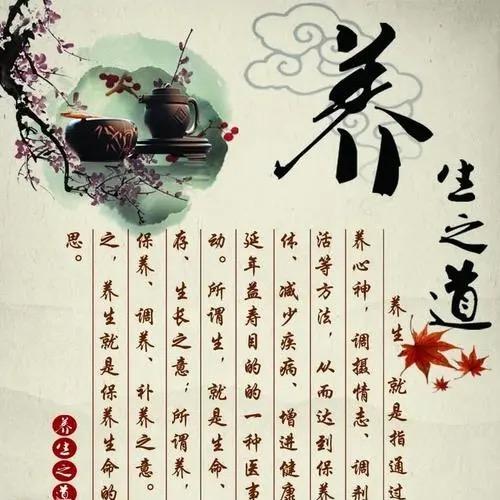 养
生之道
养生,就是指通过
养心神,调摄情志、调剂
活等方法,从而达到保养
体、减少疾病、增进健康
延年益寿目的的一种医事
动。所谓生,就是生命、
存、生长之意;所谓养,
保养、调养、补养之意。
之,养生就是保养生命的
思。
养生之道